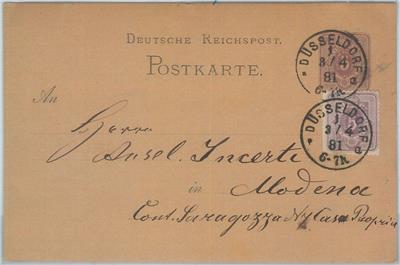 DEUTSCHE REICHSPOST.
POSTKARTE.
DÜSSELDORF
1
3/4
81
6-7N.
a
DÜSSELDORF
1
3/4
81
6-7N.
a
An
Herrn
Ansel. Incerti
in
Modena
Cont. Saragozza Casa Propria